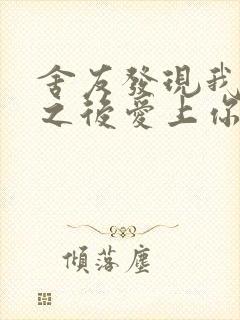 舍友發現我
之後愛上你
傾落塵